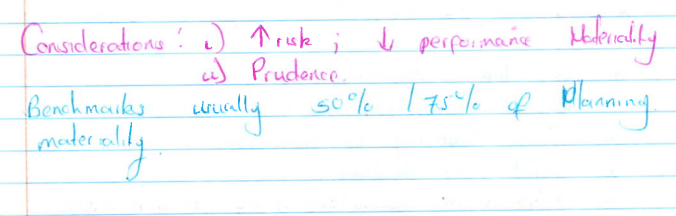 Considerations : i) ↑ risk ; ↓ performance Materiality
ii) Prudence.
Benchmarks usually 50% / 75% of Planning
materiality.